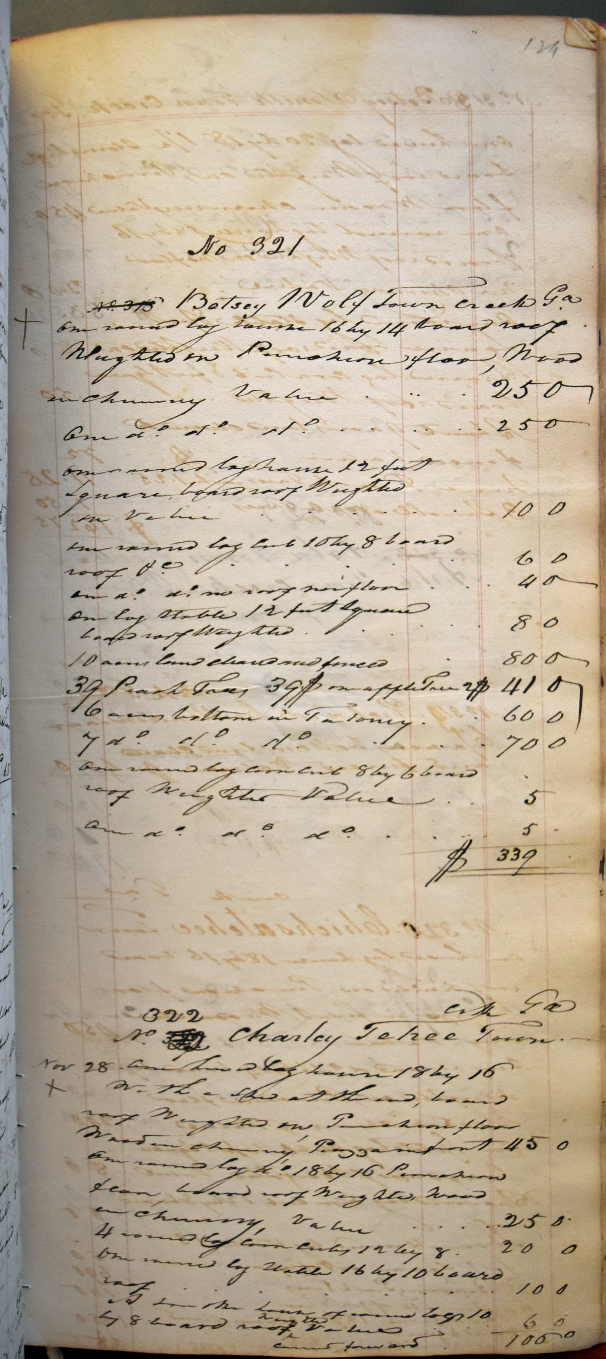 124
No 321
No. 315 Betsey Wolf Town Creek Ga
One round log house 16 by 14 board roof
Weighted on Puncheon floor, Wood
en Chimney Value 25 0
One do. do. do. 25 0
One round log house 12 feet
Square, board roof Weighted
on Value 10 0
One round log Crib 10 by 8 board
roof &c 6 0
One do. do. no roof nor floor 4 0
One log Stable 12 feet Square
board roof Weighted 8 0
10 acres land cleared and fenced 80 0
39 Peach Trees 39$ one apple Tree 2$ 41 0
6 acres bottom in 60 0
7 do. do. do. 70 0
One round log Corn Crib 8 by 6 board
roof Weighted Value 5
One do. do. do. 5
$ 339
322
Creek Ga
No. Charley Tehee Town
Nov 28. One hewed Log house 18 by 16
With a Shed at the end, board
roof Weighted on, Puncheon floor
Wooden Chimney, Piazza in front 45 0
One round log ho. 18 by 16 Puncheon
floor, board roof Weighted, Wood
en Chimney, Value 25 0
4 round log Corn Cribs 12 by 8 20 0
One round log Stable 16 by 10 board
roof 10 0
A Smoke house of round logs 10
by 8 board roof Weighted Value 6 0
carried forward 106 0